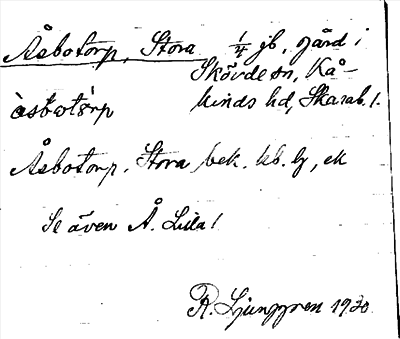 Åsbotorp, Stora 1/4 jb, gård i
Skövde sn, Kå-
kinds hd, Skarab. l.
àsbotòrp
Åsbotorp, Stora bek. kb. lj, ek
Se även Å. Lilla!
R. Ljunggren 1930.